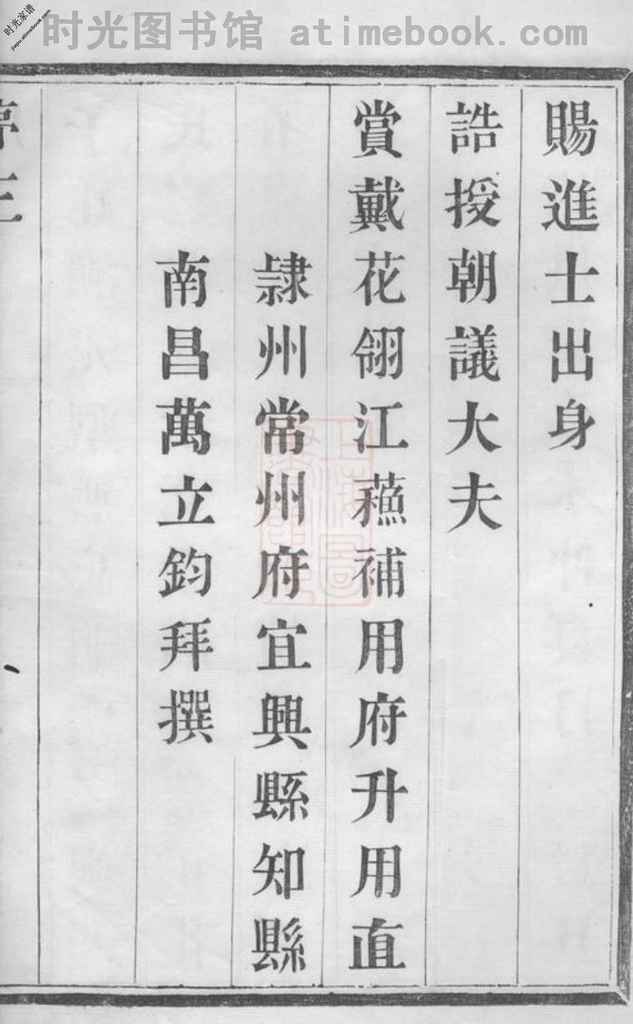 时光图书馆 atimebook.com
时光家谱
賜進士出身
誥授朝議大夫
賞戴花翎江蘓補用府升用直
隷州常州府宜興縣知縣
南昌萬立鈞拜撰